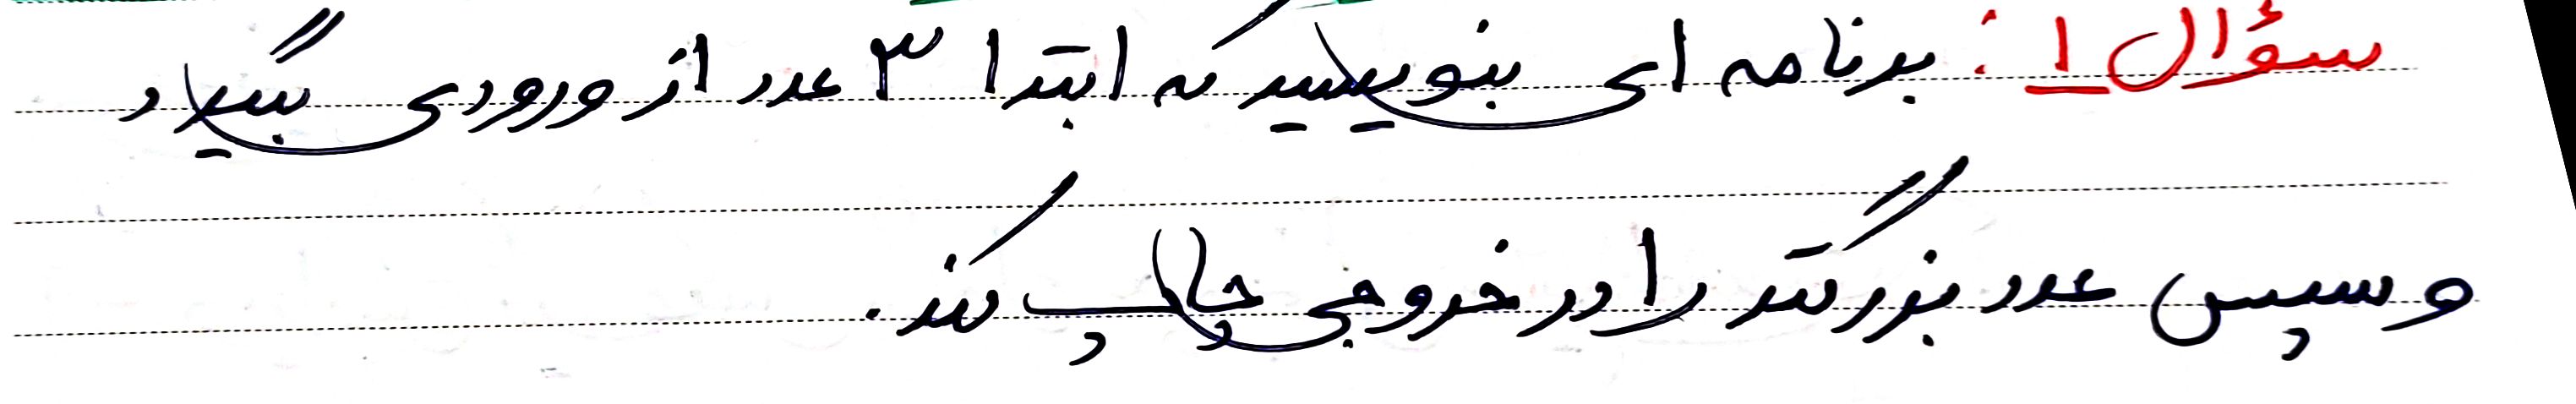 سؤال ۱: برنامه ای بنویسید که ابتدا ۳ عدد از ورودی بگیرد
و سپس عدد بزرگتر را در خروجی چاپ کند.